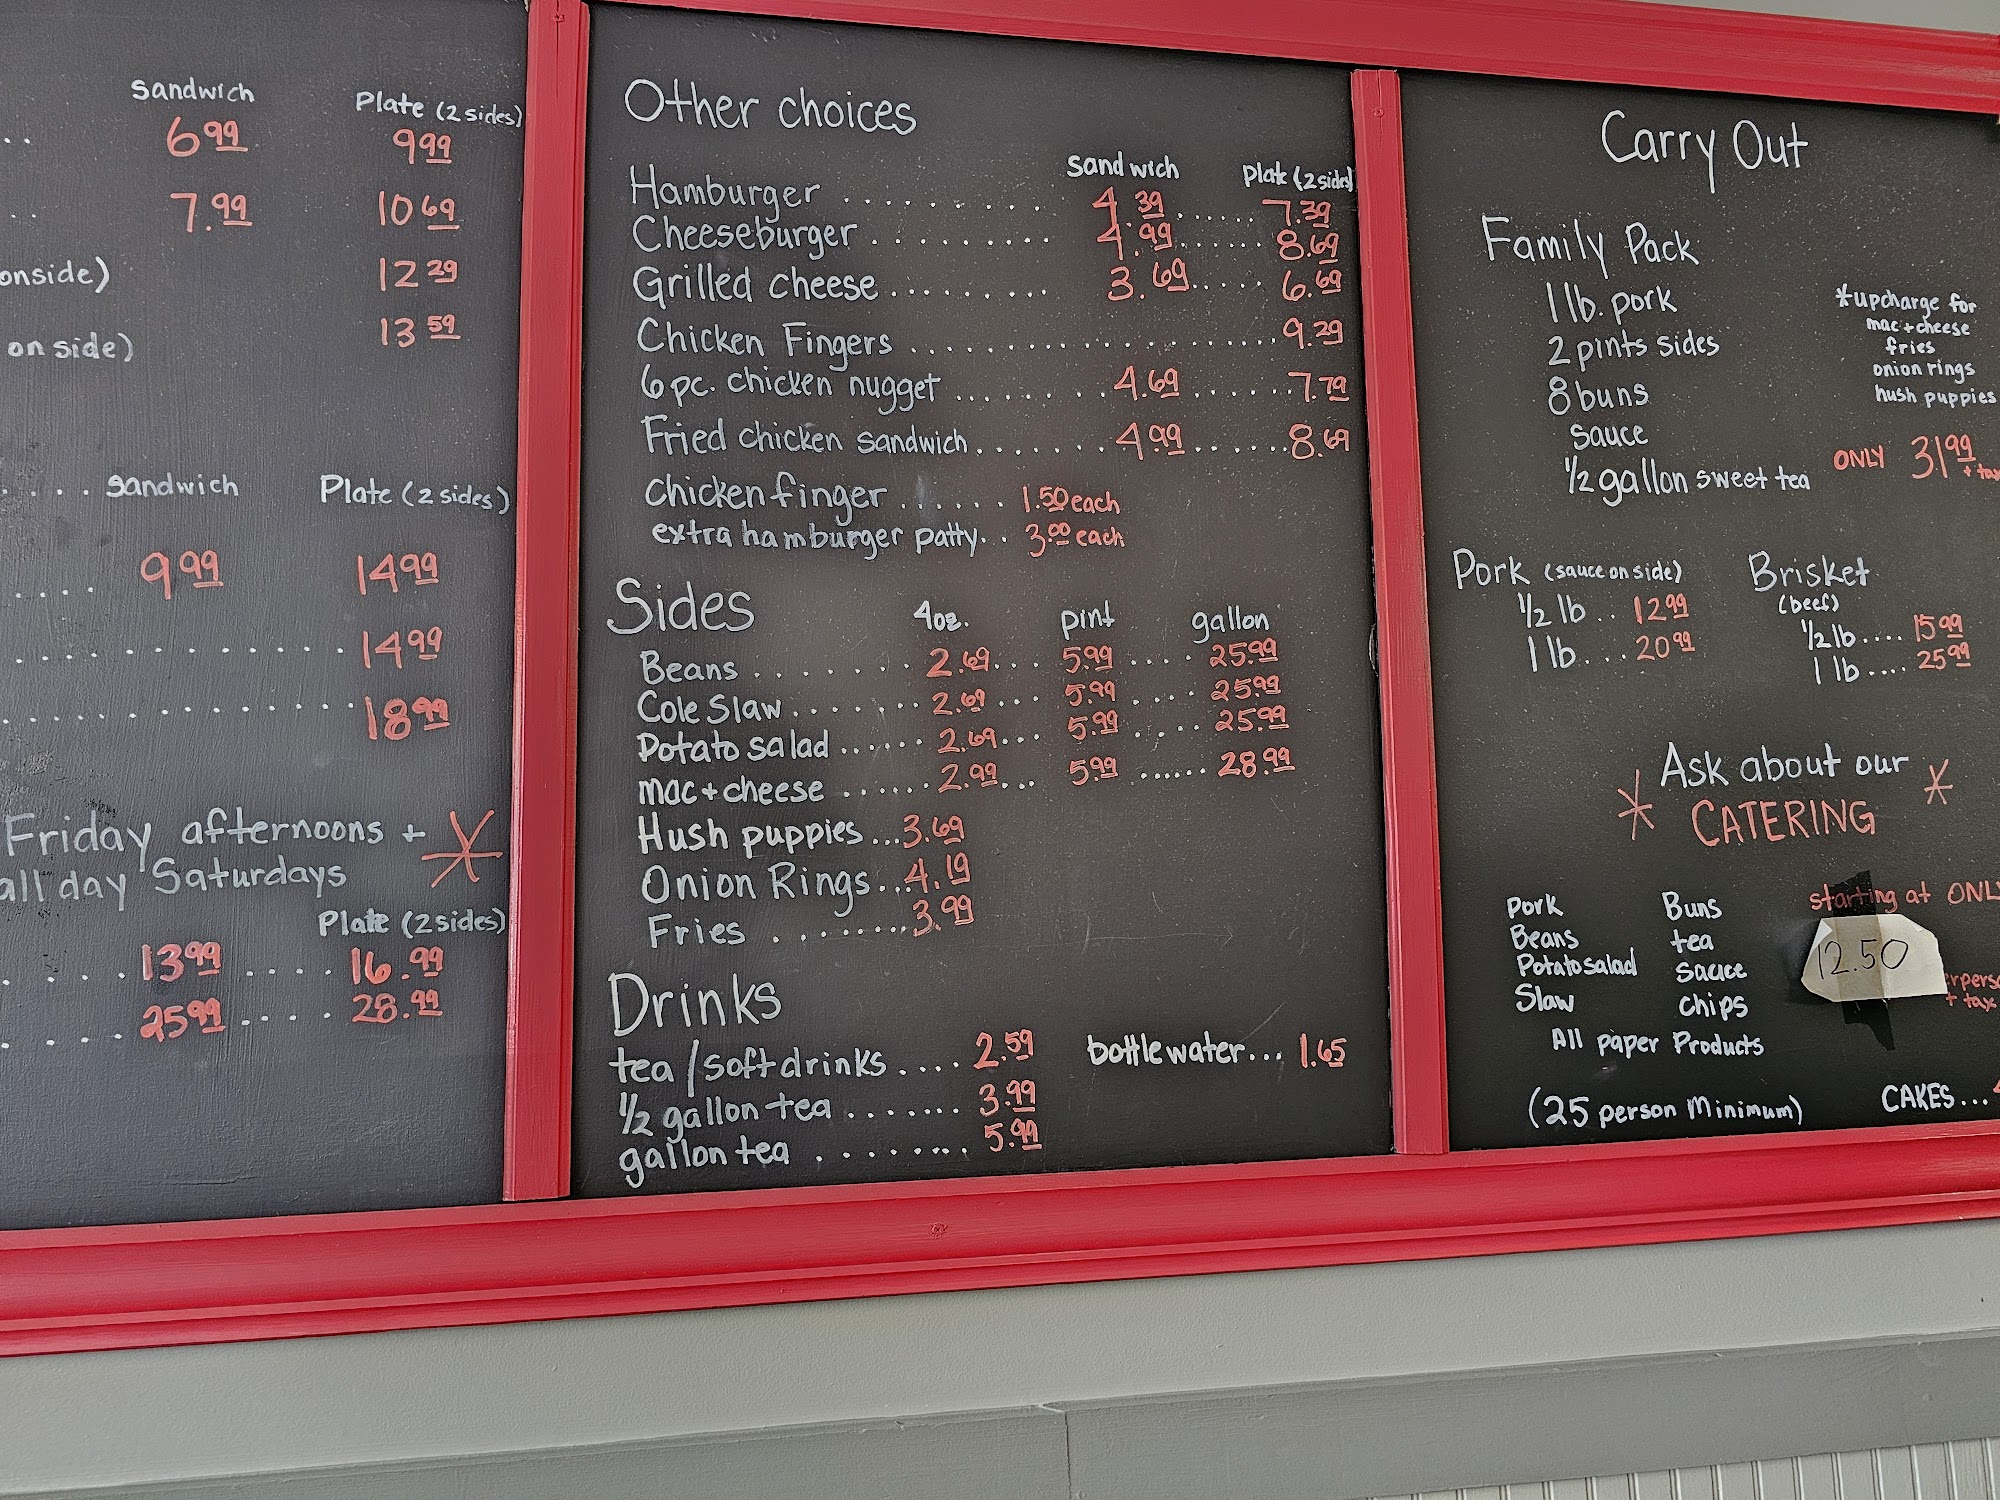 sandwich Plate (2 sides)
.. 6.99 9.99
.. 7.99 10.69
onside) 12.29
on side) 13.59
.... sandwich Plate (2 sides)
.... 9.99 14.99
............. 14.99
............. 18.99
Friday afternoons + *
all day Saturdays
Plate (2 sides)
.... 13.99 .... 16.99
.... 25.99 .... 28.99
Other choices
sandwich Plate (2 sides)
Hamburger .......... 4.39 ...... 7.39
Cheeseburger ......... 4.99 ...... 8.69
Grilled cheese ......... 3.69 ..... 6.69
Chicken Fingers .................. 9.29
6 pc. chicken nugget ........ 4.69 ...... 7.79
Fried chicken sandwich ....... 4.99 ...... 8.69
chicken finger ...... 1.50 each
extra hamburger patty.. 3.00 each
Sides 4oz. pint gallon
Beans ....... 2.69 ... 5.99 .... 25.99
Cole Slaw ...... 2.69 ... 5.99 .... 25.99
Potato salad ...... 2.69 ... 5.99 ..... 25.99
mac + cheese ...... 2.99 ... 5.99 ...... 28.99
Hush puppies ... 3.69
Onion Rings ... 4.19
Fries ........ 3.99
Drinks
tea / soft drinks .... 2.59 bottle water... 1.65
1/2 gallon tea ....... 3.99
gallon tea ........ 5.99
Carry Out
Family Pack
1 lb. pork
2 pints sides
8 buns
sauce
1/2 gallon sweet tea
*upcharge for
mac + cheese
fries
onion rings
hush puppies
ONLY 31.99
+ tax
Pork (sauce on side)
1/2 lb .. 12.99
1 lb ... 20.99
Brisket
(beef)
1/2 lb .... 15.99
1 lb .... 25.99
Ask about our
* CATERING *
Pork Buns
Beans tea
Potato salad sauce
Slaw chips
All paper Products
starting at ONLY
12.50
+ tax
(25 person Minimum)
CAKES...